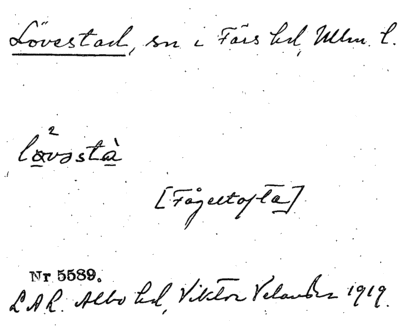 Lövestad, sn i Färs hd, Mlm. l.
2
lövəstà
[Fågeltofta]
Nr 5589.
L.A.L. Albo hd, Viktor Velander 1919.